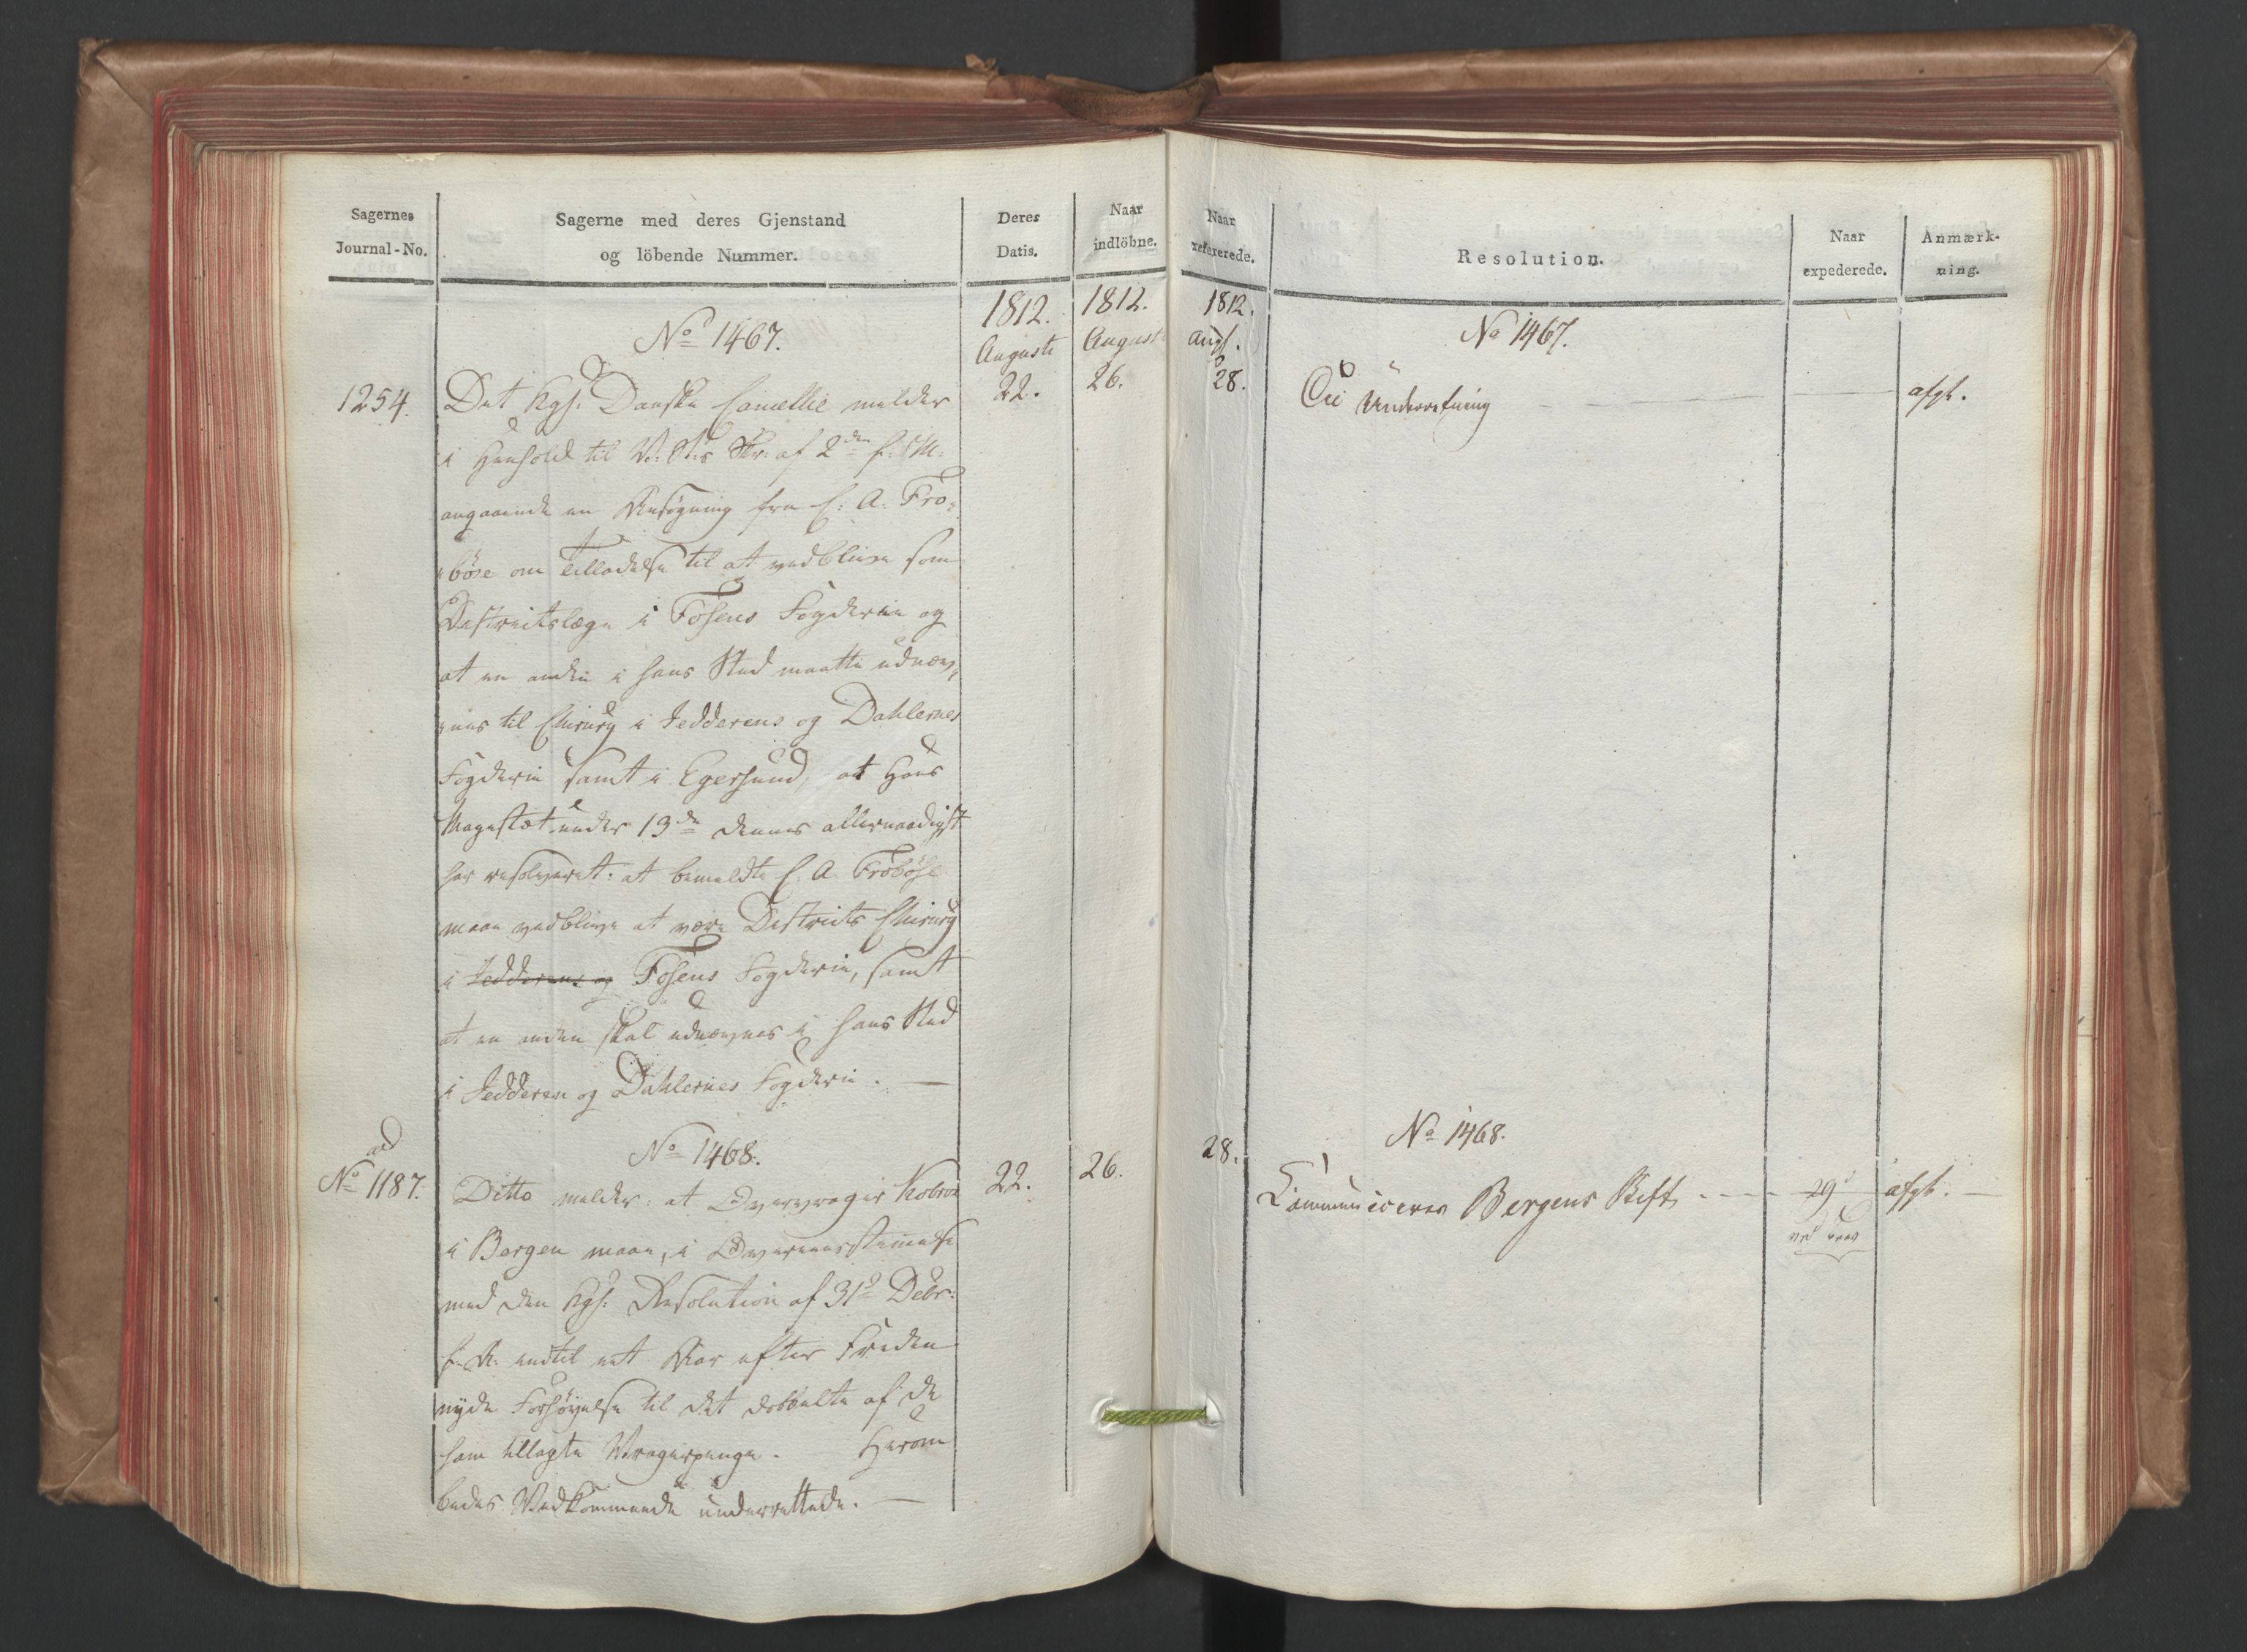 Sagernes
Journal-No.
Sagerne med deres Gjenstand
og löbende Nummer.
Deres
Datis.
Naar
indlöbne.
1812.
Augusti
1812.
August
No 1467.
1254.
Det Kgl. Danske Cancellie melder
22.
26.
i Henhold til V. St:s Skr. af 2den f: M:
angaaende en Ansøgning fra C: A. Fro-
böse om Tilladelse til at vedblive som
Districtslæge i Fosens Fogderie og
at en anden i hans Sted maatte udnæv-
nes til Chirurg i Jedderens og Dahlernes
Fogderie samt i Egersund, at Hans
Majestæt under 13de dennes allernaadigst
har resolveret: at bemeldte C. A Froböse
maa vedblive at være Districts Chirurg
i Jedderens og Fosens Fogderie, samt
at en anden skal udnævnes i hans Sted
i Jedderen og Dahlernes Fogderie. —
ad
No 1187.
No 1468.
Ditto melder: at Overvrager Kobroe
22.
26.
i Bergen maae, i Overeensstemmelse
med den Kgl: Resolution af 31te Debr:
f. A: indtil eet Aar efter Freden
nyde Forhøyelse til det dobbelte af de
ham tillagte Vragerpenge. Herom
bedes Vedkommende underrettede. —
Naar
refererede.
Resolution.
Naar
expederede.
Anmærk-
ning.
1812.
Augs.
28.
No 1467.
Til Underretning
afgt.
28.
No 1468.
Communiceres Bergens Stift
29
afgt.